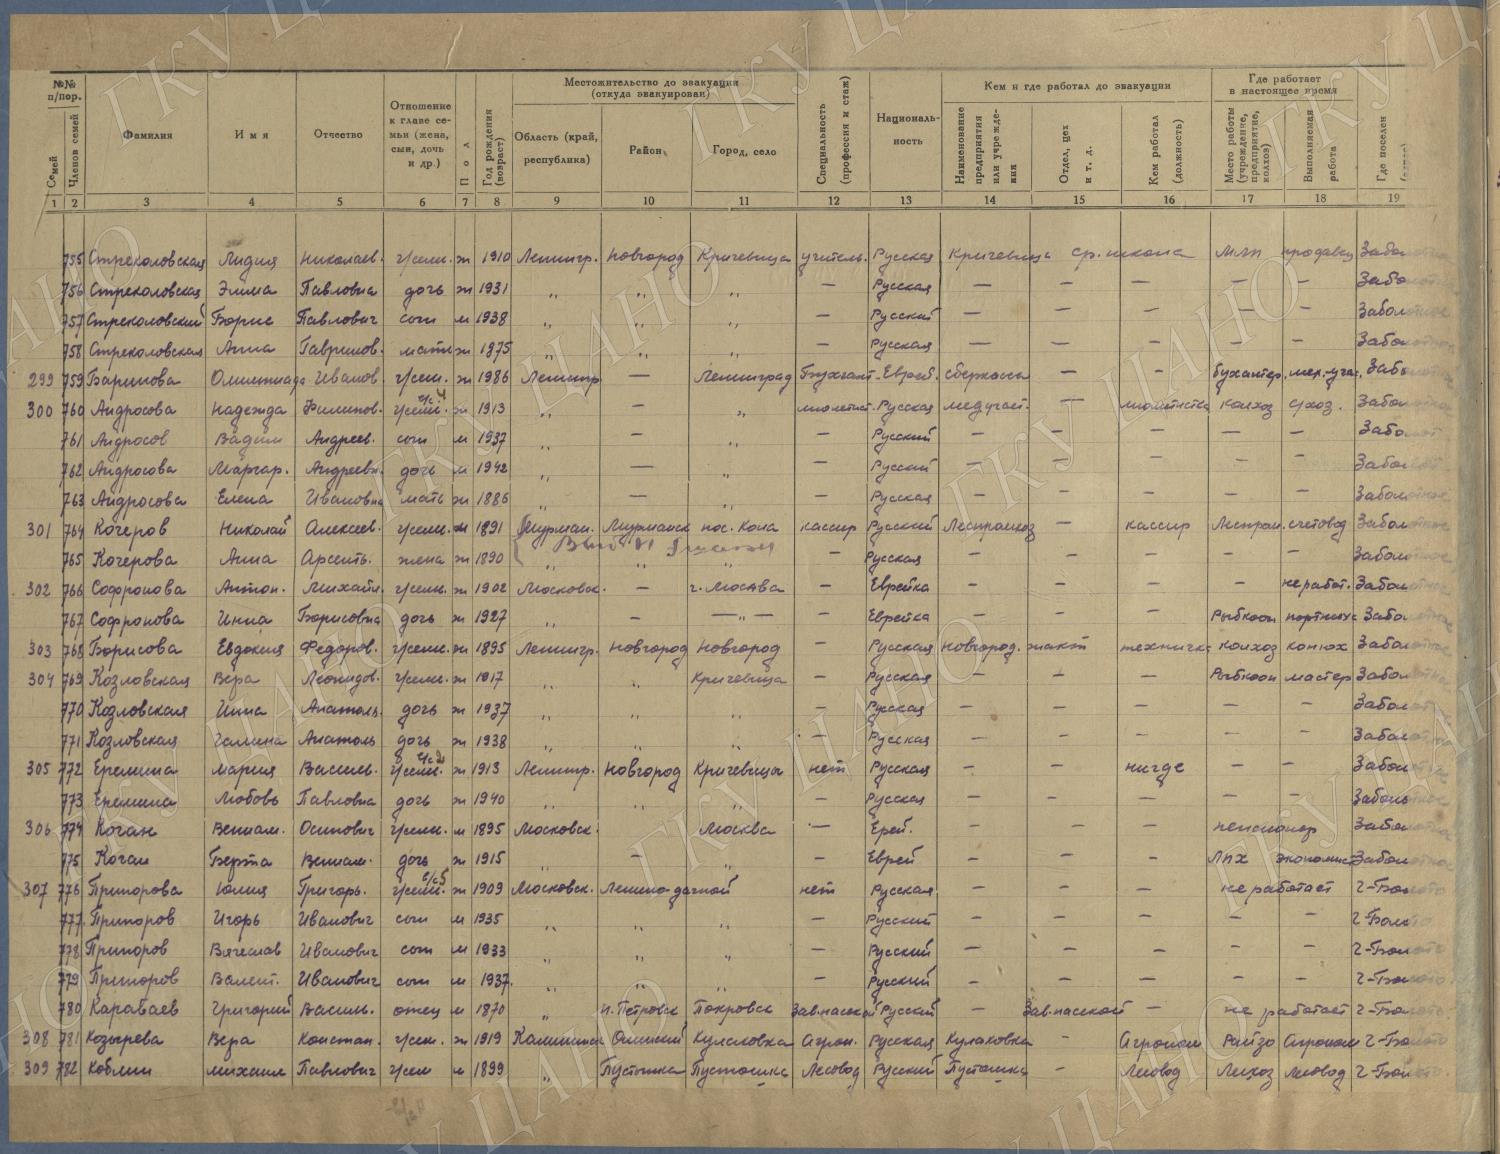 №№ п/пор.
Семей
Членов семей
Фамилия
Имя
Отчество
Отношение к главе семьи (жена, сын, дочь и др.)
Пол
Год рождения (возраст)
Местожительство до эвакуации (откуда эвакуирован)
Область (край, республика)
Район
Город, село
Специальность (профессия и стаж)
Националь-ность
Кем и где работал до эвакуации
Наименование предприятия или учреждения
Отдел, цех и т. д.
Кем работал (должность)
Где работает в настоящее время
Место работы (учреждение, предприятие, колхоз)
Выполняемая работа
Где поселен
1 2 3 4 5 6 7 8 9 10 11 12 13 14 15 16 17 18 19
755 Стреколовская Лидия Николаев. г/сем. ж 1910 Ленингр. Новгород Кричевица учитель. Русская Кричевица ср. школа МЛП продавец Забол
756 Стреколовская Элла Павловна дочь ж 1931 „ „ „ — Русская — — — — — Забо
757 Стреколовский Борис Павлович сын м 1938 „ „ „ — Русский — — — — — Заболотное
758 Стреколовская Анна Гаврилов. мать ж 1875 „ „ „ — Русская — — — — — Забол
299 759 Баринова Олимпиада Иванов. г/сем. ж 1986 Ленингр — Ленинград Бухгалт. Еврей. сберкасса — — бухгалтер. Забо
300 760 Андросова Надежда Филипов. г/сем. ж 1913 „ — „ Русская медучас. — колхоз с/хоз. Забол
761 Андросов Вадим Андреев. сын м 1937 „ — „ — Русский — — — — — Забо
762 Андросова Маргар. Андреевн. дочь м 1942 „ — „ — Русский — — — — — Забо
763 Андросова Елена Ивановна мать ж 1886 „ — „ — Русская — — — — — Заболотное
301 764 Кочеров Николай Алексеев. г/сем. м 1891 Мурман. Мурманск пос. Кола кассир Русский Леспромхоз — кассир Леспром. счетовод Забол
765 Кочерова Анна Арсенть. жена ж 1890 „ „ „ — Русская — — — — — Заболотное
302 766 Софронова Антон. Михайл. г/сем. ж 1902 Московск. — г. Москва — Еврейка — — — не работ. Заболотное
767 Софронова Инна Борисовна дочь ж 1927 „ — —„— — Еврейка — — — Рыбкооп портниха Забол
303 768 Борисова Евдокия Федоров. г/сем. ж 1895 Ленингр. Новгород Новгород — Русская Новгород. жакт техничка колхоз конюх Заболотное
304 769 Козловская Вера Леонидов. г/сем. ж 1917 „ „ Кричевица — Русская — — — Рыбкооп мастер Забол
770 Козловская Инна Анатоль. дочь ж 1937 „ „ „ — Русская — — — — — Забол
771 Козловская Галина Анатоль дочь ж 1938 „ „ „ — Русская — — — — — Забол
305 772 Еремина Мария Василь. г/сем. ж 1913 Ленингр. Новгород Кричевицы нет Русская — — нигде — — Забол
773 Еремина Любовь Павловна дочь ж 1940 „ „ „ — Русская — — — — — Забол
306 774 Коган Вениам. Осипович г/сем. м 1895 Московск. Москва — Еврей. — — — пенсионер Забол
775 Коган Берта Вениам. дочь ж 1915 „ — „ — Еврей — — — ЛПХ экономис Забол
307 776 Припорова Юлия Григорь. г/сем. ж 1909 Московск. Ленино-дачной нет Русская. — — — не работает Г-Болото
777 Припоров Игорь Иванович сын м 1935 „ „ „ — Русский — — — — — Г-Болото
778 Припоров Вячеслав Иванович сын м 1933 „ „ „ — Русский — — — — — Г-Болото
779 Припоров Валент. Иванович сын м 1937 „ „ „ — Русский — — — — — Г-Болото
780 Карабаев Григорий Василь. отец м 1870 „ Н. Петровск Покровск Зав. пасекой Русский — Зав. пасекой — не работает Г-Болото
308 781 Козырева Вера Констан. г/сем. ж 1919 Калинин Кулаковка Агрон. Русская Кулаковка — Агроном Райзо Агроном Г-Болото
309 782 Коблин Михаил Павлович г/сем м 1899 „ Пустошка Пустошка Лесовод Русский Пустошка — Лесовод Лесхоз Лесовод Г-Болото
ГКУ ЦАНО